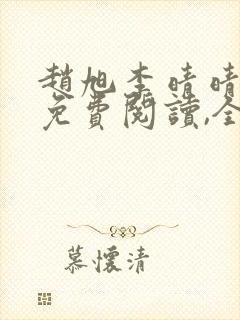 趙旭李晴晴
免費閱讀,全
慕懷清